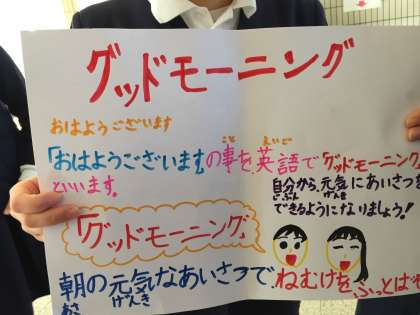 グッドモーニング
おはようございます
「おはようございます」の事を英語で「グッドモーニング」
こと えいご
といいます。
自分から元気にあいさつを
じぶん げんき
できるようになりましょう!
「グッドモーニング」
朝の元気なあいさつで、ねむけをふっとば
げんき